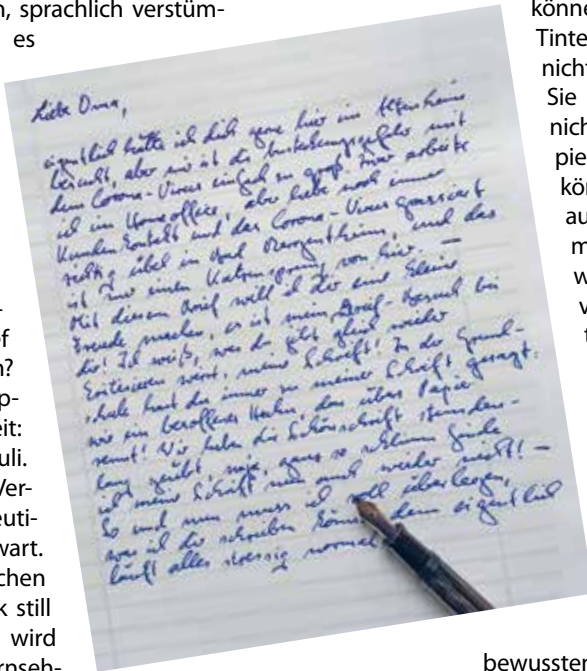 n, sprachlich verstüm-
es
of
n?
p-
eit:
uli.
Ver-
euti-
wart.
chen
k still
wird
rnseh-
Liebe Oma,
eigentlich hätte ich dich gerne hier im Altenheim
besucht, aber mir ist die Ansteckungsgefahr mit
dem Corona-Virus einfach zu groß. Zwar arbeite
ich im Homeoffice, aber habe noch immer
Kundenkontakt und das Corona-Virus grassiert
richtig übel in Bad Mergentheim, und das
ist nur einen Katzensprung von hier. —
Mit diesem Brief will ich dir eine kleine
Freude machen, es ist mein Brief-Besuch bei
dir! Ich weiß, was du jetzt gleich wieder
kritisieren wirst, meine Schrift! In der Grund-
schule hast du immer zu meiner Schrift gesagt:
wie ein besoffener Hahn, der übers Papier
rennt! Wir haben die Schönschrift stunden-
lang geübt, naja, ganz so schlimm finde
ich meine Schrift nun auch wieder nicht! —
So und nun muss ich überlegen,
was ich dir schreiben könnte, denn eigentlich
läuft alles stressig normal
könne
Tinte
nicht
Sie
nich
pie
kön
au
m
w
v
t
bewussten